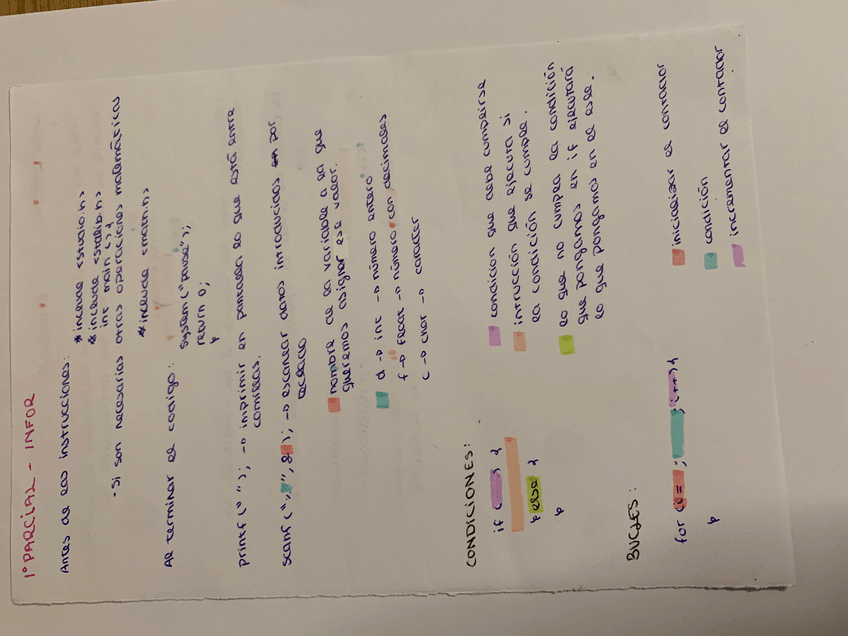 1º PARCIAL - INFOR
Antes de las instrucciones:
#include <stdio.h>
#include <stdlib.h>
int main () {
·Si son necesarias otras operaciones matemáticas
#include <math.h>
Al terminar el codigo:
system ("pause");
return 0;
}
printf (" "); → imprimir en pantalla lo que está entre
comillas.
scanf ("%", & ); → escanear datos introducidos por
teclado
nombre de la variable a la que
queremos asignar ese valor.
d → int → número entero
f → float → número con decimales
c → char → caracter
CONDICIONES:
if ( ) {
} else {
}
condicion que debe cumplirse
intrucción que ejecuta si
la condición se cumple.
lo que no cumpla la condición
que pongamos en if ejecutará
lo que pongamos en el else.
BUCLES:
for (i = ; ; i++) {
}
inicializar el contador
condición
incrementar el contador